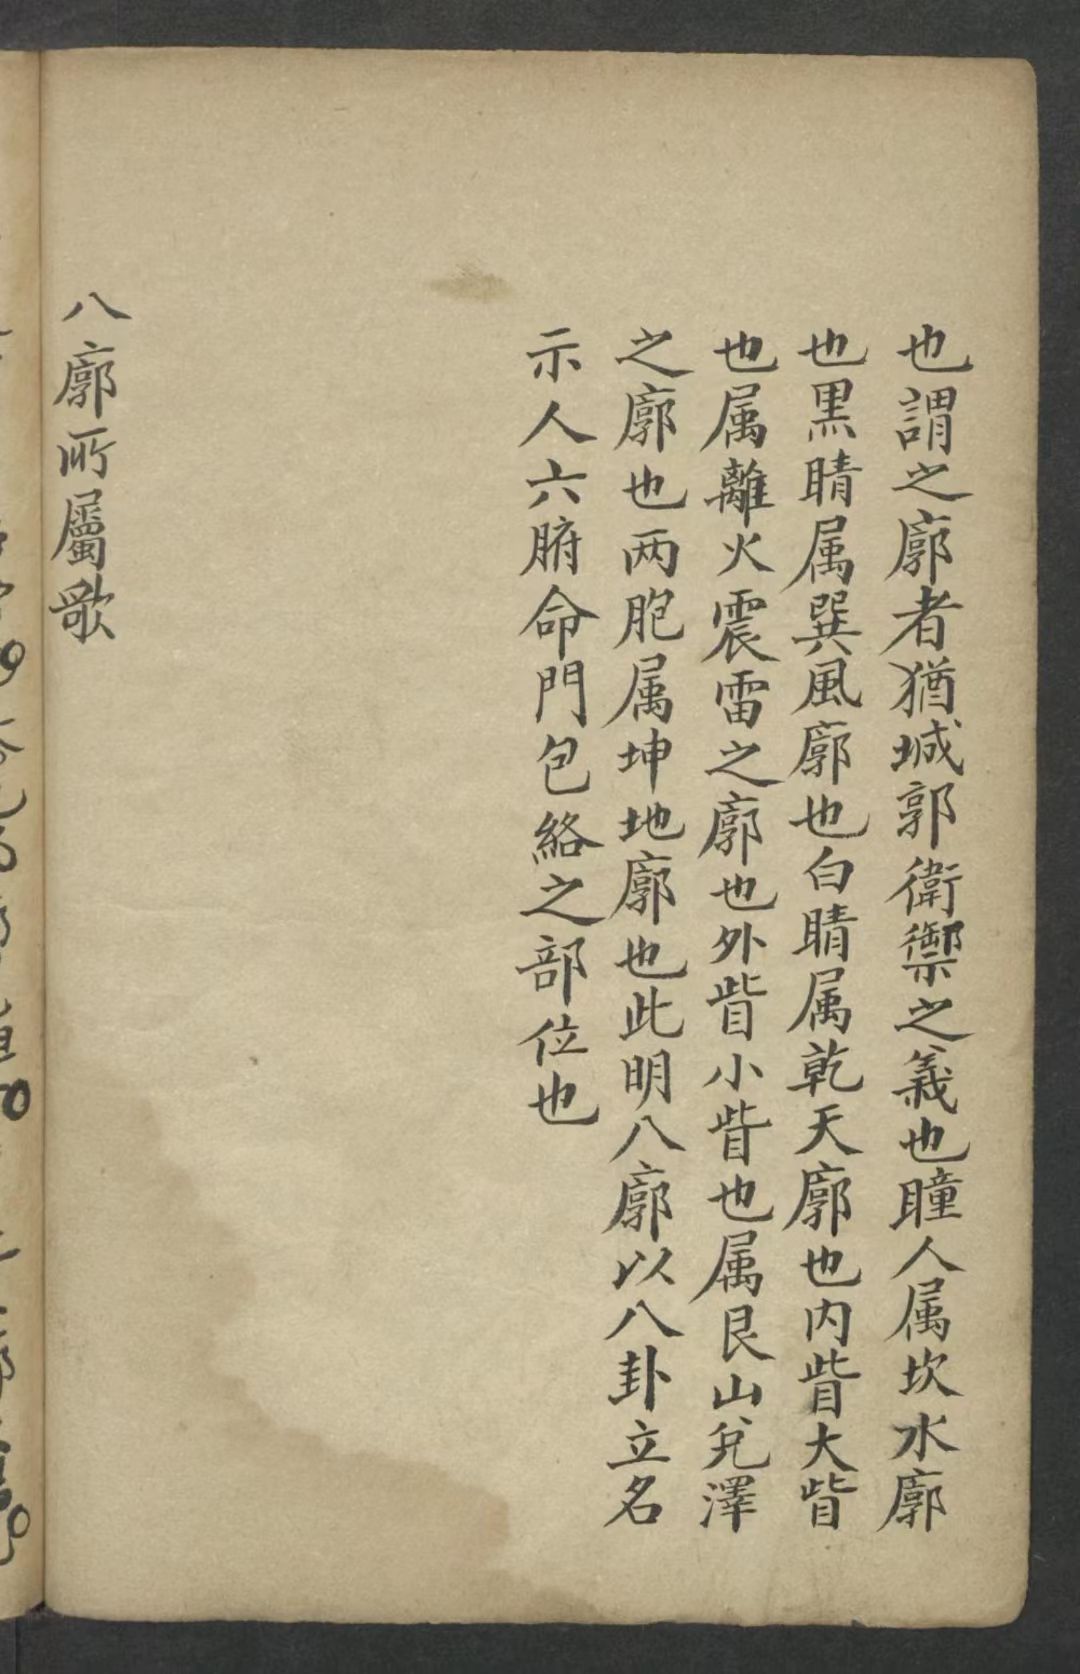 也謂之廓者猶城郭衛禦之義也瞳人属坎水廓
也黒睛属巽風廓也白睛属乾天廓也内眥大眥
也属離火震雷之廓也外眥小眥也属艮山兊澤
之廓也两胞属坤地廓也此明八廓以八卦立名
示人六腑命門包絡之部位也
八廓所屬歌